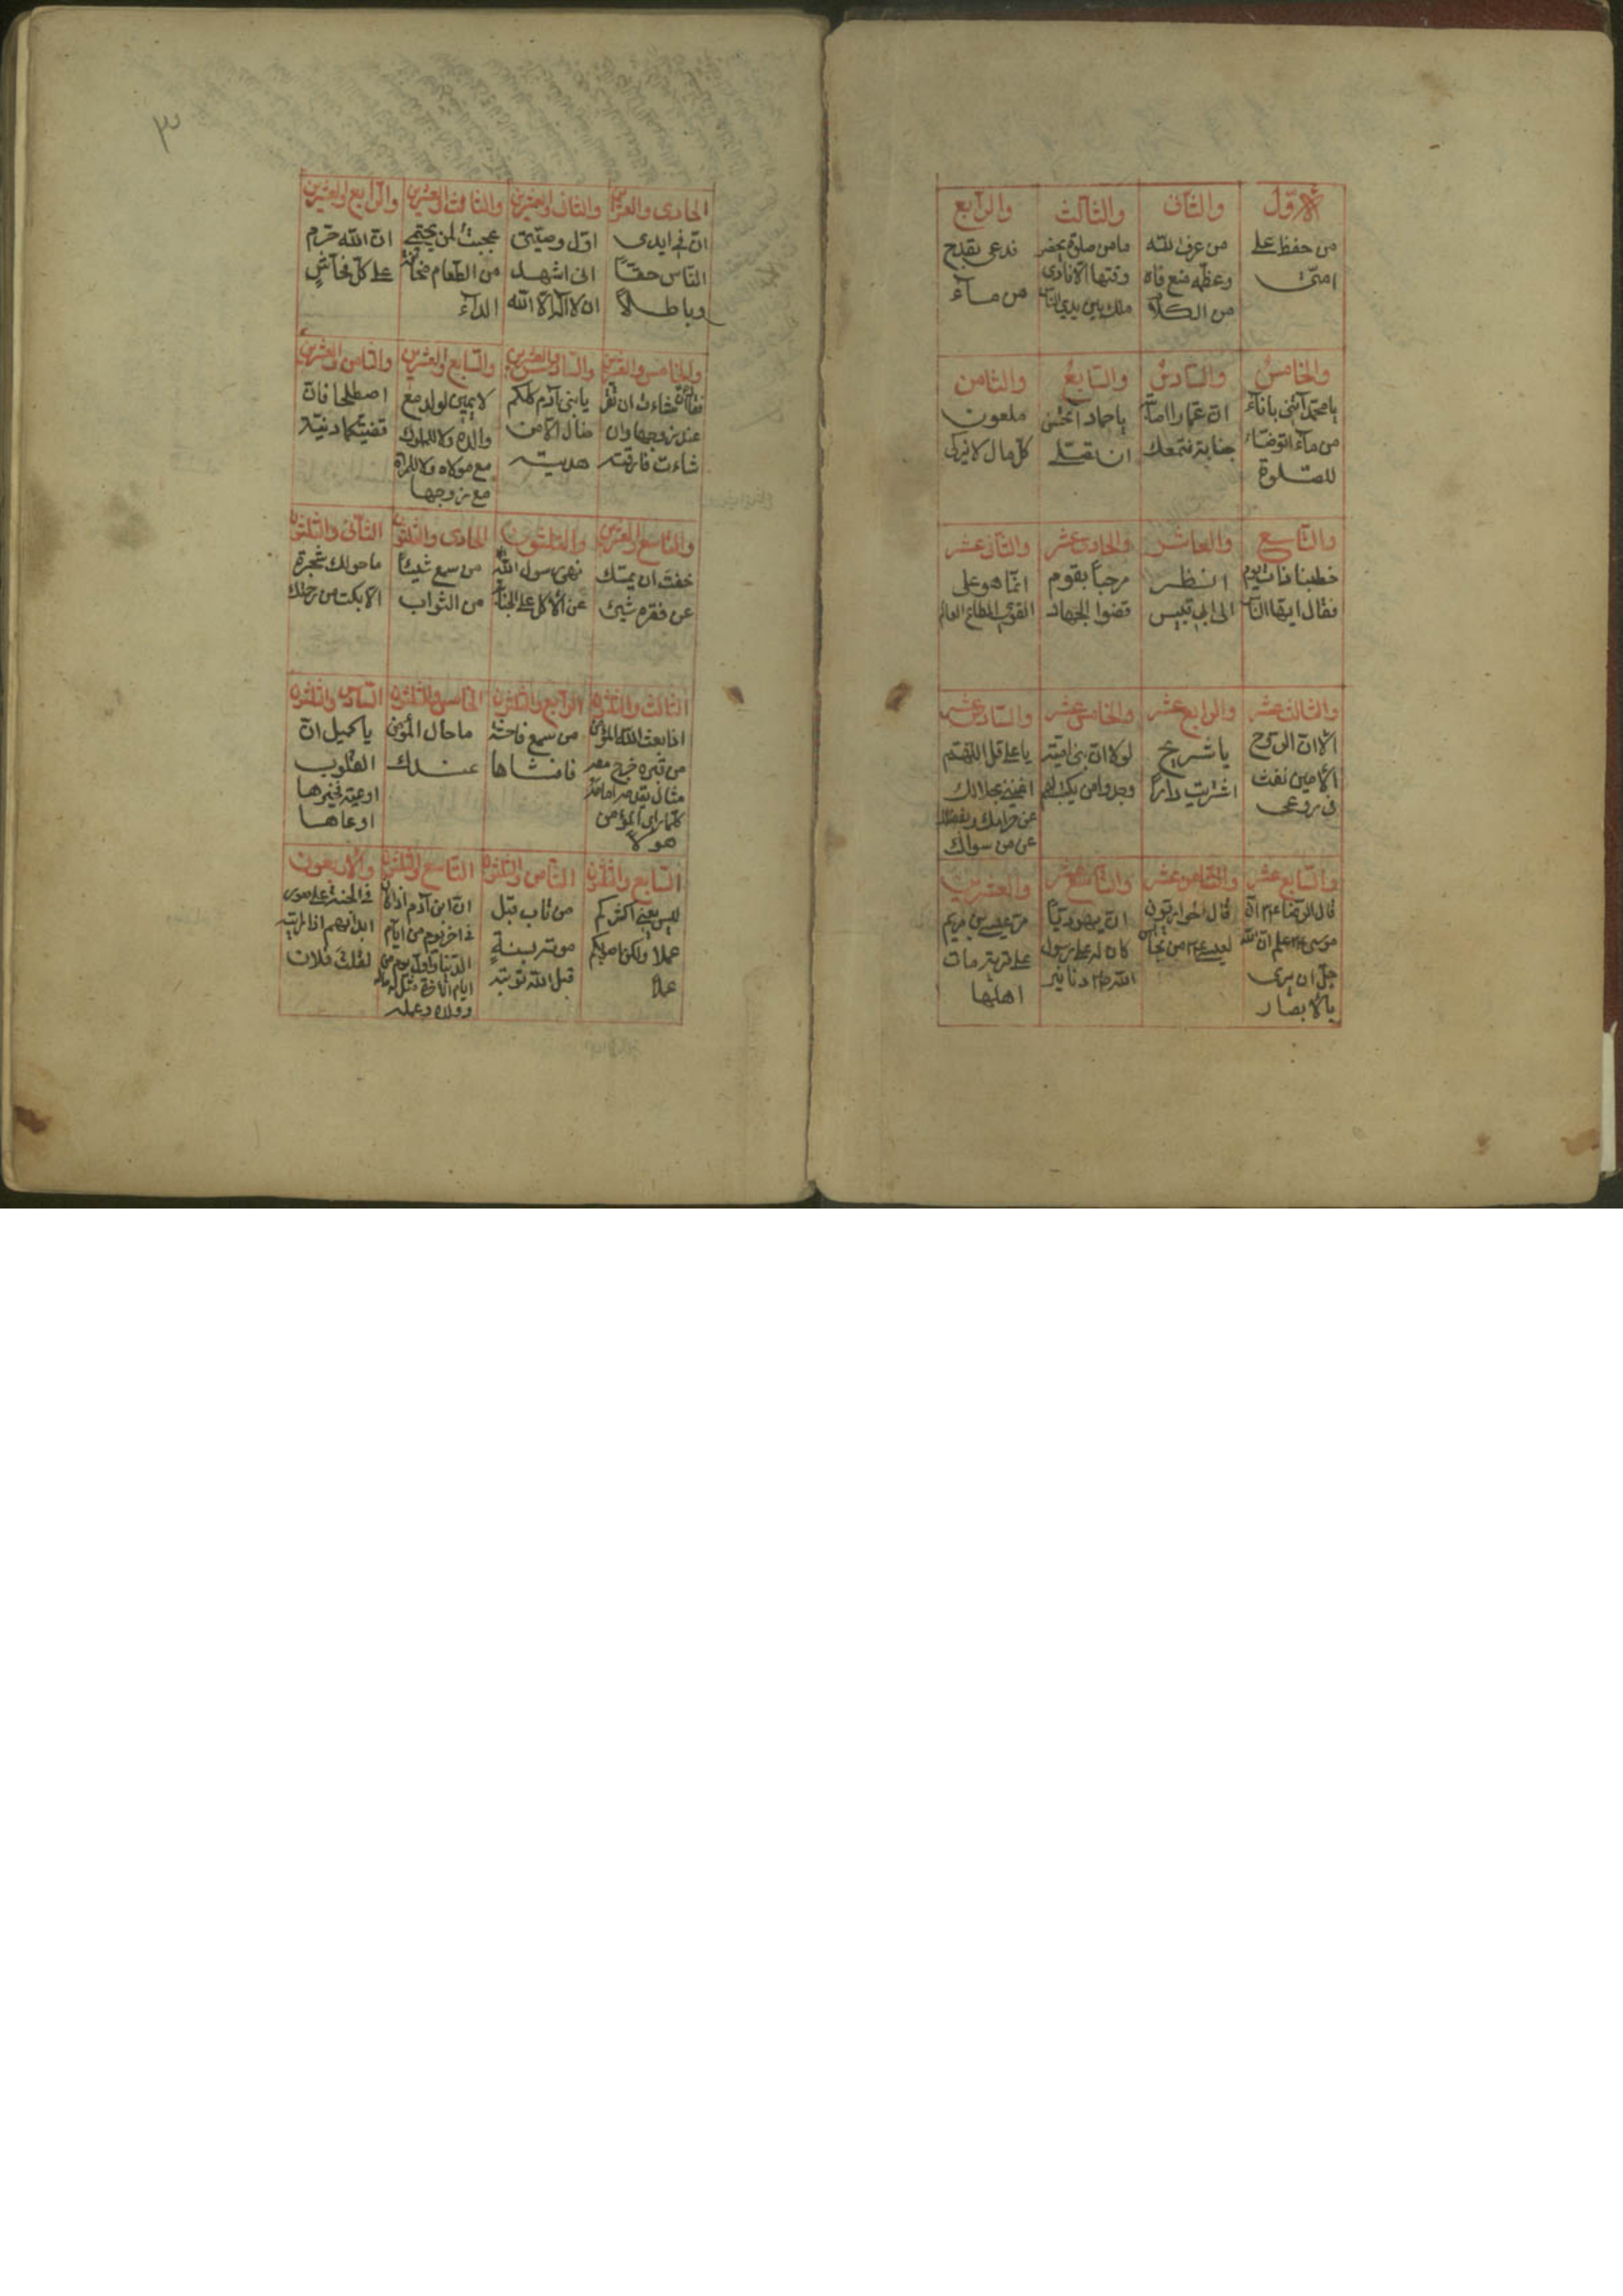 الاوّل
من حفظ على
امتى
والثانى
من عرف الله
وعظّمه منع فاه
من الكلام
والثالث
ما من صلوة يحضر
وقتها الا نادى
ملك بين يدى الناس
والرابع
فدعى بقدح
من مآء
والخامس
يا محمد آتنى باناء
من مآء اتوضّاء
للصّلوة
والسّادس
انّ عمّارا اصابته
جنابة فتمعك
والسّابع
يا حماد أتحسن
ان تصلّى
والثامن
ملعون
كلّ مال لا يزكى
والتّاسع
خطبنا ذات يوم
فقال ايّها النّاس
والعاشر
النظر
الى ابى قبيس
والحادى عشر
مرحباً بقوم
قضوا الجهاد
والثانى عشر
انّما هو على
القوىّ المطاع العالم
والثالث عشر
الا انّ الرّوح
الأمين نفث
فى روعى
والرابع عشر
يا شريح
اشتريت داراً
والخامس عشر
لولا انّ بنى اميّة
وجدوا من يكتب لهم
والسّادس عشر
يا على قل اللّهمّ
اغننى بحلالك
عن حرامك وبفضلك
عن من سواك
والسّابع عشر
قال الرّضا ع انّ
موسى ع علم انّ الله
جلّ ان يرى
بالأبصار
والثامن عشر
قال الحواريّون
لعيسى ع من نجالس
والتاسع عشر
انّ يهوديّاً
كان له على رسول
الله ص دنانير
والعشرين
مرّ عيسى بن مريم
على قرية مات
اهلها
٣
الحادى والعشرين
انّ فى ايدى
النّاس حقّاً
وباطلاً
والثانى والعشرين
اوّل وصيّتى
انى اشهد
ان لا اله الا الله
والثالث والعشرين
عجبت لمن يحتمى
من الطّعام مخافة
الدآء
والرّابع والعشرين
انّ الله حرّم
على كلّ فحّاشٍ
والخامس والعشرين
شاءت ان تقر
عند زوجها وان
شاءت فارقته
والسّادس والعشرين
يا بنى آدم كلكم
ضال الا من
هديته
والسّابع والعشرين
لا يمين لولد مع
والده ولا للمملوك
مع مولاه ولا للمرأة
مع زوجها
والثامن والعشرين
اصطلحا فانّ
قضيّتكما دنيّة
والتاسع والعشرين
خفت ان يمسّك
عن فقره شىء
والثلثون
نهى رسول الله
عن الأكل على الجنابة
الحادى والثلثون
من سمع شيئاً
من الثواب
الثانى والثلثون
ما حولك شجرة
الثالث والثلثون
اذا بعث الله المؤمن
من قبره خرج معه
مثال يقدمه امامه
كلّما راى المؤمن
هولا
الرابع والثلثون
من سمع فاحشة
فافشاها
الخامس والثلثون
ما حال المؤمن
عندك
السّادس والثلثون
يا كميل انّ
القلوب
اوعية فخيرها
اوعاها
السّابع والثلثون
ليس يعنى اكثركم
عملا ولكن اصوبكم
عملا
الثامن والثلثون
من تاب قبل
موته بسنةٍ
قبل الله توبته
التّاسع والثلثون
انّ ابن آدم اذا كان
فى اخر يوم من ايّام
الدّنيا واوّل يوم من
ايام الاخرة مثل له ماله
وولده وعمله
والأربعون
فى الجنّة على صور
ابدانهم اذا رايته
لقلت فلان